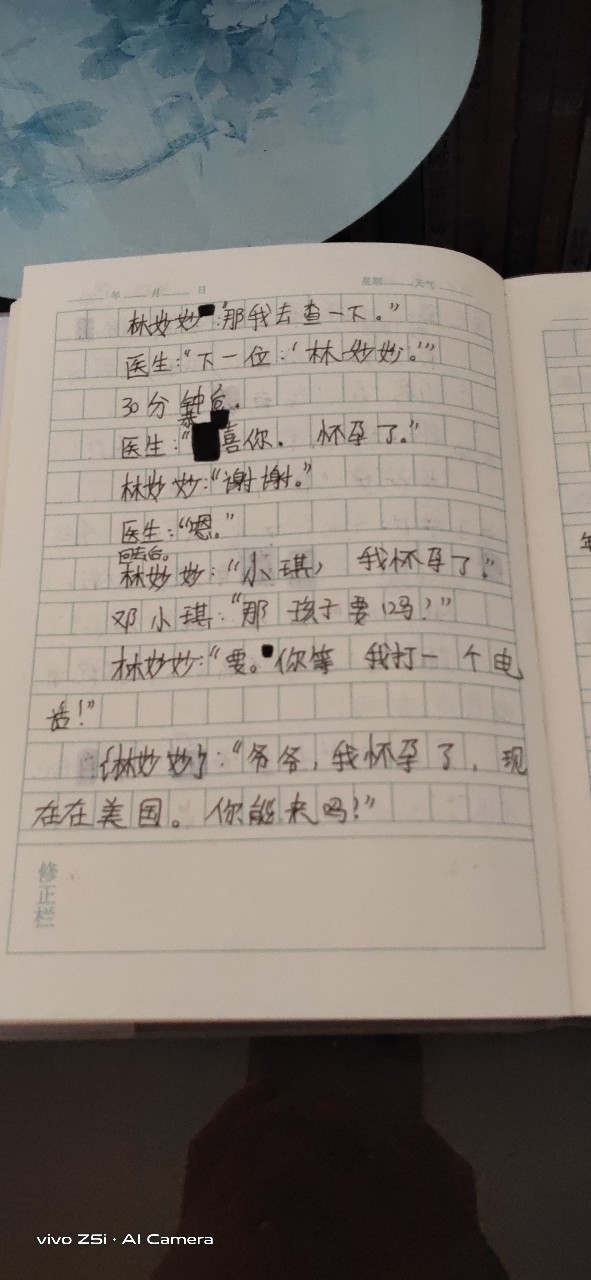 年 月 日 星期 天气
林妙妙:“那我去查一下。”
医生:“下一位:‘林妙妙。’”
30分钟后.
恭
医生:“喜你. 怀孕了。”
林妙妙:“谢谢。”
医生:“嗯。”
回去后。
林妙妙:“小琪, 我怀孕了。”
邓小琪:“那孩子要吗?”
林妙妙:“要。你等 我打一个电
话!”
{林妙妙}:“爷爷,我怀孕了,现
在在美国。你能来吗?”
修正栏
vivo Z5i · AI Camera